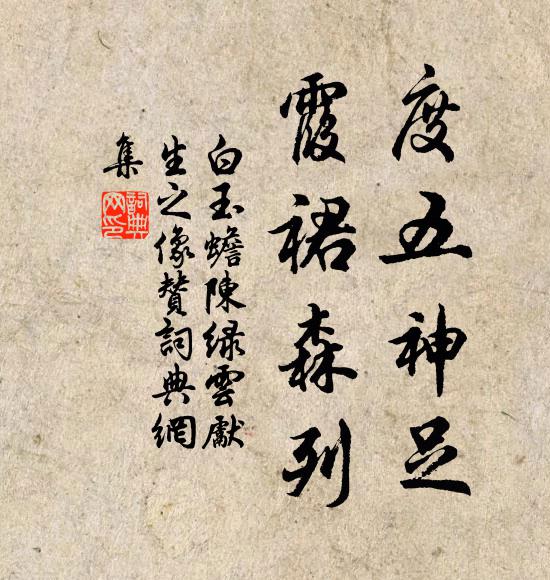 度五神足
霞裙森列
白玉蟾陳綠雲獻
生之像贊詞典網
集
詞典網印